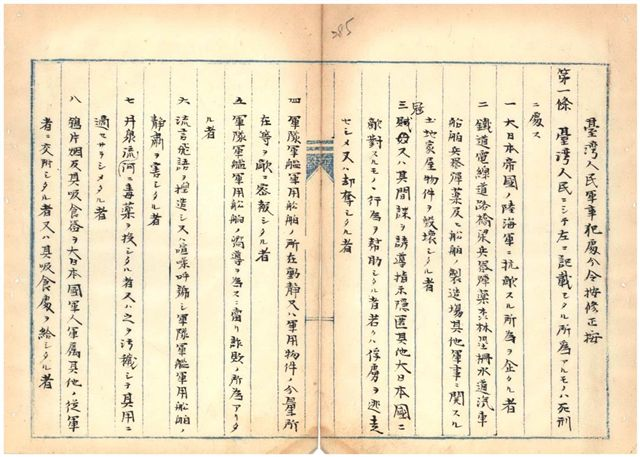 385
臺灣人民軍事犯處分令按修正按
第一條 臺灣人民ニシテ左ニ記載シタル所為アルモノハ死刑
ニ處ス
一 大日本帝國ノ陸海軍ニ抗敵スル所為ヲ企タル者
二 鐵道電線道路橋梁兵器彈藥森林堡柵水道汽車
船舶兵器彈藥及ヒ船舶ノ製造場其他軍事ニ関スル
土地家屋物件ヲ毀壊シタル者
三 敵 冦 又ハ其間諜ヲ誘導指示隠匿其他大日本國ニ
敵對スルモノノ行為ヲ幇助シタル者若クハ俘虜ヲ逃走
セシメ又ハ却奪シタル者
四 軍隊軍艦軍用船舶ノ所在動静又ハ軍用物件ノ分量所
在等ヲ敵ニ密報シタル者
五 軍隊軍艦軍用船舶ノ嚮導ヲ為スニ當リ詐欺ノ所為アリタ
ル者
六 流言飛語ヲ揑造シ又ハ喧噪呼號シ軍隊軍艦軍用船舶ノ
静肅ヲ害シタル者
七 井泉流河ニ毒藥ヲ投シタル者又ハ之ヲ汚穢シテ其用ニ
適セサラシメタル者
八 鴉片烟及其吸食器ヲ大日本國軍人軍属其他ノ従軍
者ニ交附シタル者又ハ其吸食處ヲ給シタル者